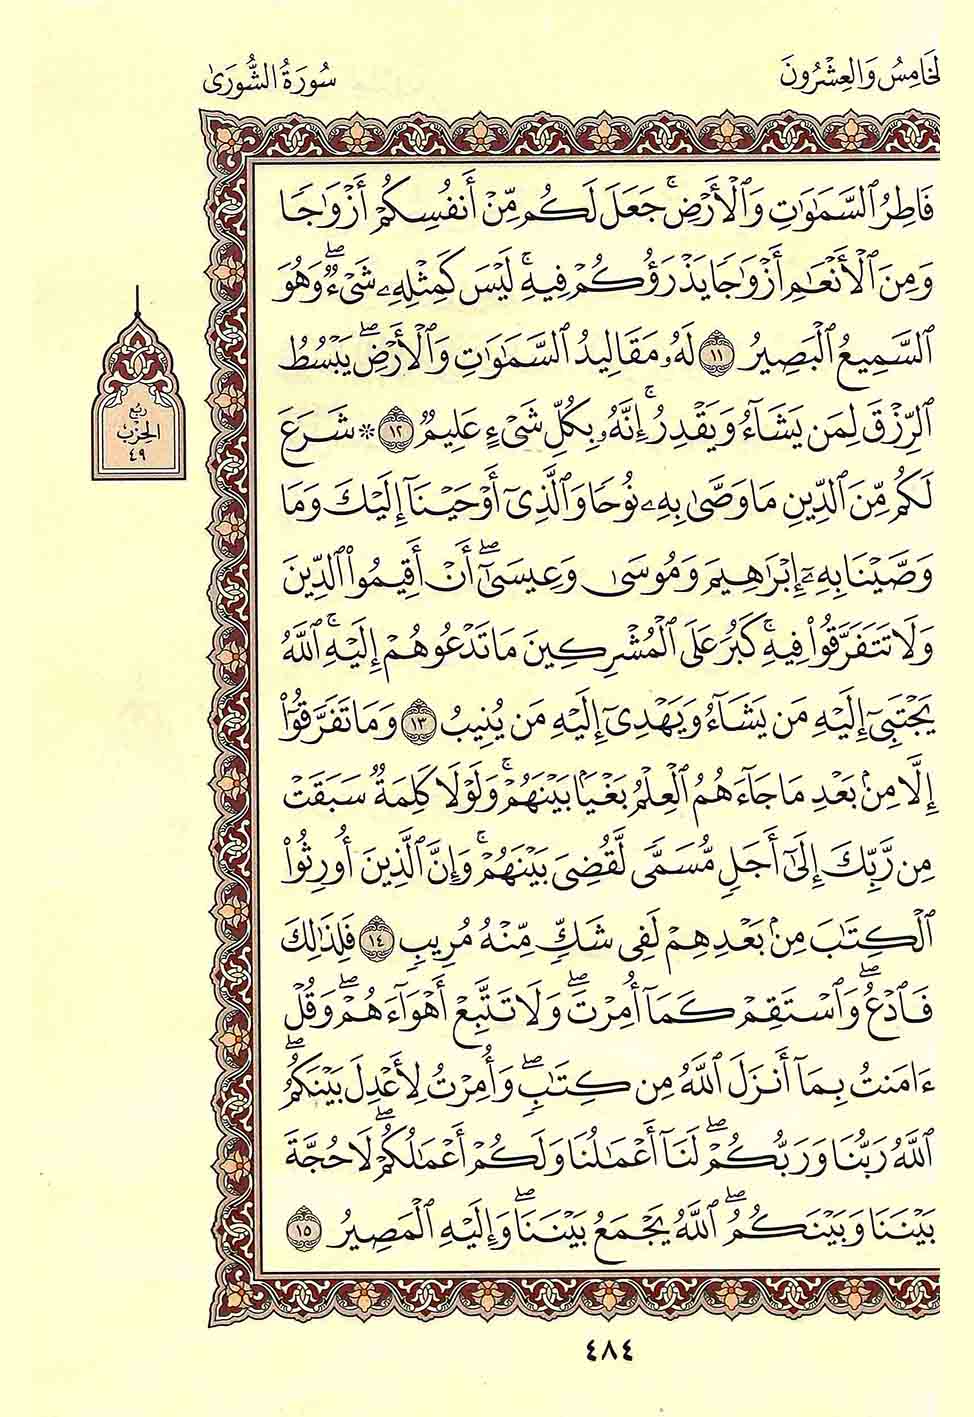 لخَامِسُ وَالعِشْرُونَ
سُورَةُ الشُّورَىٰ
فَاطِرُ ٱلسَّمَٰوَٰتِ وَٱلْأَرْضِۚ جَعَلَ لَكُم مِّنْ أَنفُسِكُمْ أَزْوَٰجًا
وَمِنَ ٱلْأَنْعَٰمِ أَزْوَٰجًا يَذْرَؤُكُمْ فِيهِۚ لَيْسَ كَمِثْلِهِۦ شَىْءٌۖ وَهُوَ
ٱلسَّمِيعُ ٱلْبَصِيرُ ١١ لَهُۥ مَقَالِيدُ ٱلسَّمَٰوَٰتِ وَٱلْأَرْضِۖ يَبْسُطُ
ٱلرِّزْقَ لِمَن يَشَآءُ وَيَقْدِرُۚ إِنَّهُۥ بِكُلِّ شَىْءٍ عَلِيمٌ ١٢ * شَرَعَ
لَكُم مِّنَ ٱلدِّينِ مَا وَصَّىٰ بِهِۦ نُوحًا وَٱلَّذِىٓ أَوْحَيْنَآ إِلَيْكَ وَمَا
وَصَّيْنَا بِهِۦٓ إِبْرَٰهِيمَ وَمُوسَىٰ وَعِيسَىٰٓۖ أَنْ أَقِيمُوا۟ ٱلدِّينَ
وَلَا تَتَفَرَّقُوا۟ فِيهِۚ كَبُرَ عَلَى ٱلْمُشْرِكِينَ مَا تَدْعُوهُمْ إِلَيْهِۚ ٱللَّهُ
يَجْتَبِىٓ إِلَيْهِ مَن يَشَآءُ وَيَهْدِىٓ إِلَيْهِ مَن يُنِيبُ ١٣ وَمَا تَفَرَّقُوٓا۟
إِلَّا مِنۢ بَعْدِ مَا جَآءَهُمُ ٱلْعِلْمُ بَغْيًۢا بَيْنَهُمْۚ وَلَوْلَا كَلِمَةٌ سَبَقَتْ
مِن رَّبِّكَ إِلَىٰٓ أَجَلٍ مُّسَمًّى لَّقُضِىَ بَيْنَهُمْۚ وَإِنَّ ٱلَّذِينَ أُورِثُوا۟
ٱلْكِتَٰبَ مِنۢ بَعْدِهِمْ لَفِى شَكٍّ مِّنْهُ مُرِيبٍ ١٤ فَلِذَٰلِكَ
فَٱدْعُۖ وَٱسْتَقِمْ كَمَآ أُمِرْتَۖ وَلَا تَتَّبِعْ أَهْوَآءَهُمْۖ وَقُلْ
ءَامَنتُ بِمَآ أَنزَلَ ٱللَّهُ مِن كِتَٰبٍۖ وَأُمِرْتُ لِأَعْدِلَ بَيْنَكُمُۖ
ٱللَّهُ رَبُّنَا وَرَبُّكُمْۖ لَنَآ أَعْمَٰلُنَا وَلَكُمْ أَعْمَٰلُكُمْۖ لَا حُجَّةَ
بَيْنَنَا وَبَيْنَكُمُۖ ٱللَّهُ يَجْمَعُ بَيْنَنَاۖ وَإِلَيْهِ ٱلْمَصِيرُ ١٥
رُبُع
الحِزْب
٤٩
٤٨٤